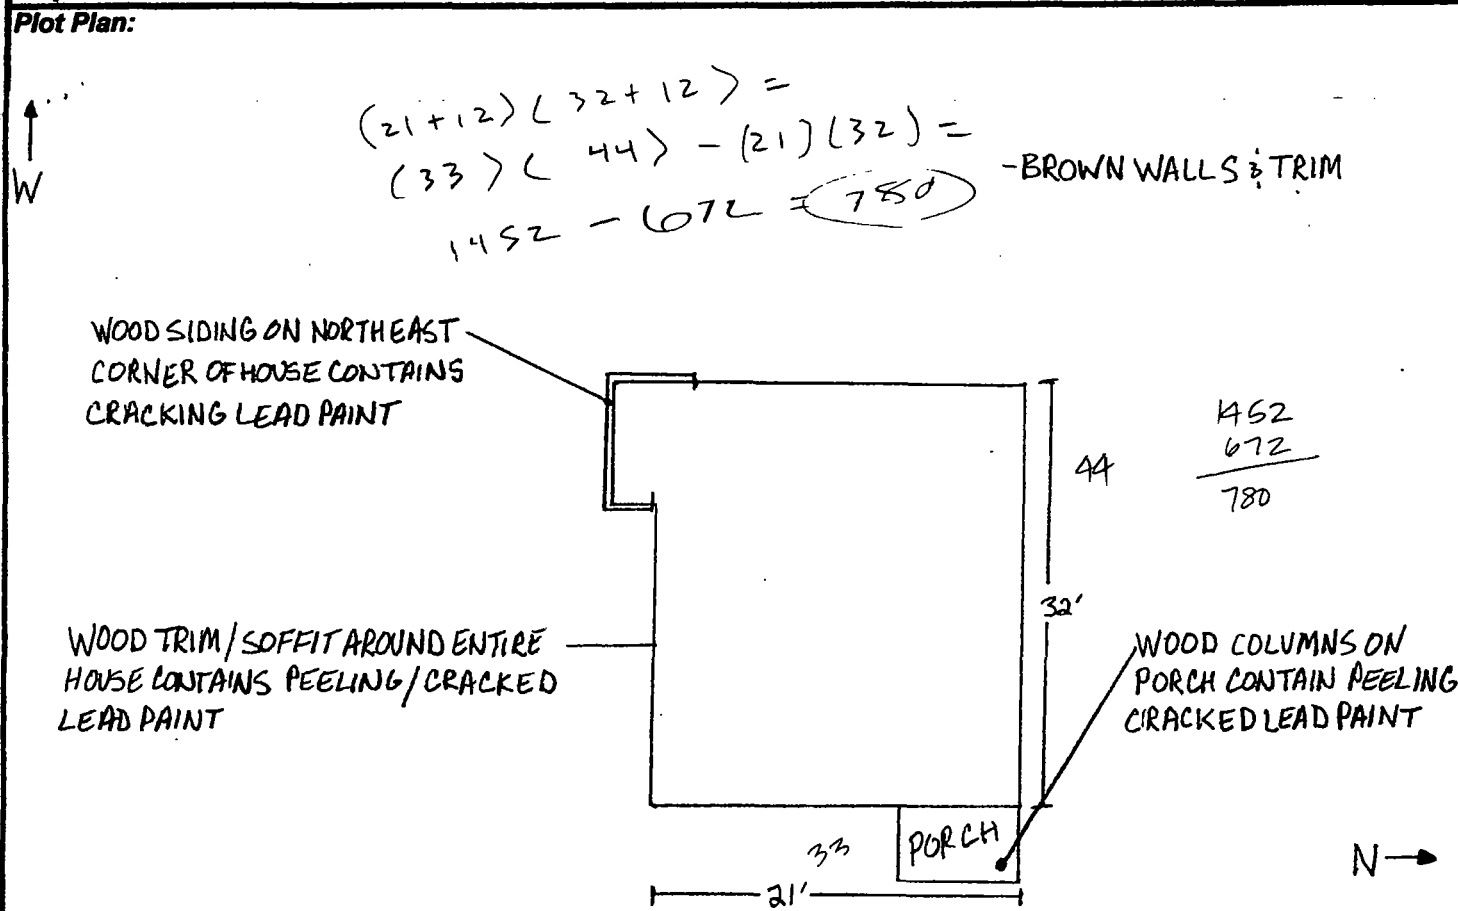 Plot Plan:
W
(21+12)(32+12) =
(33)(44) - (21)(32) =
1452 - 672 = 780
-BROWN WALLS & TRIM
WOOD SIDING ON NORTHEAST
CORNER OF HOUSE CONTAINS
CRACKING LEAD PAINT
44
1452
672
780
32'
WOOD TRIM/SOFFIT AROUND ENTIRE
HOUSE CONTAINS PEELING/CRACKED
LEAD PAINT
WOOD COLUMNS ON
PORCH CONTAIN PEELING
CRACKED LEAD PAINT
PORCH
33
21'
N